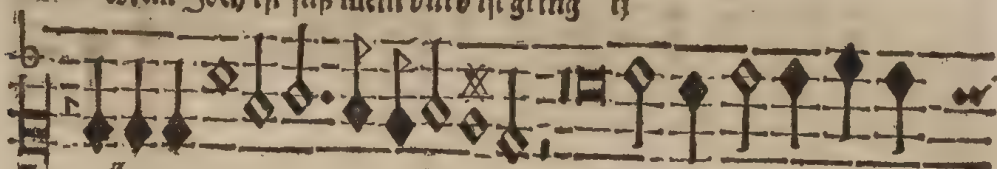 Mein Joch iſt ſuͤß mein buͤrd iſt gring ij